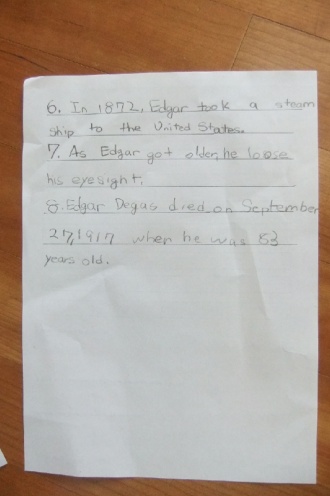 6. In 1872, Edgar took a steam
ship to the United States.
7. As Edgar got older, he loose
his eyesight.
8. Edgar Degas died on September
27, 1917 when he was 83
years old.